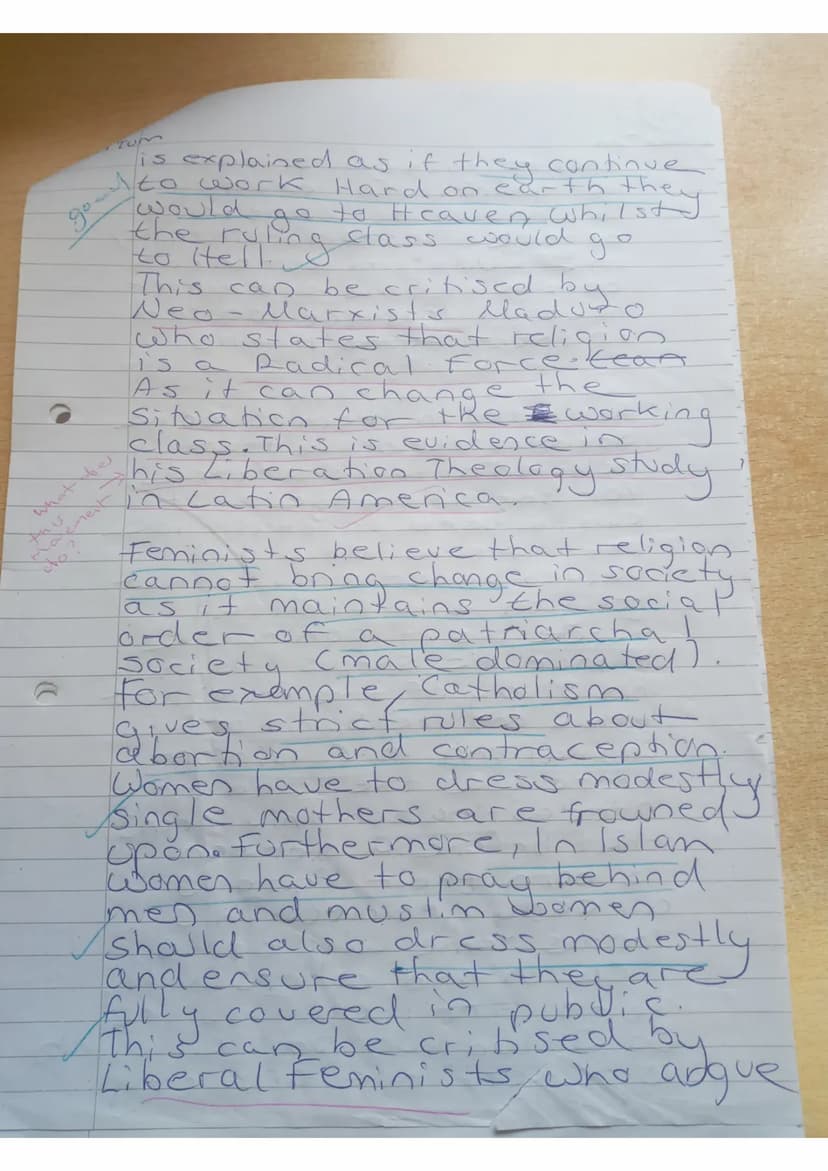 is explained as if they continue
good
to work Hard on earth they
would go to Heaven whilst
the ruling class would go
to Hell.
This can be critised by
Neo-Marxists Maduro
who states that religion
is a Radical force. 
As it can change the
situation for the working
class. This is evidence in
his Liberation Theology study
in Latin America.
what does
this
movement
do?
Feminists believe that religion
cannot bring change in society
as it maintains the social
order of a patriarchal
society (male dominated).
for example, Catholism
gives strict rules about
abortion and contraception.
Women have to dress modestly
single mothers are frowned
upon. Furthermore, In Islam
women have to pray behind
men and muslim women
should also dress modestly
and ensure that they are
fully covered in public.
This can be critised by
Liberal Feminists who argue